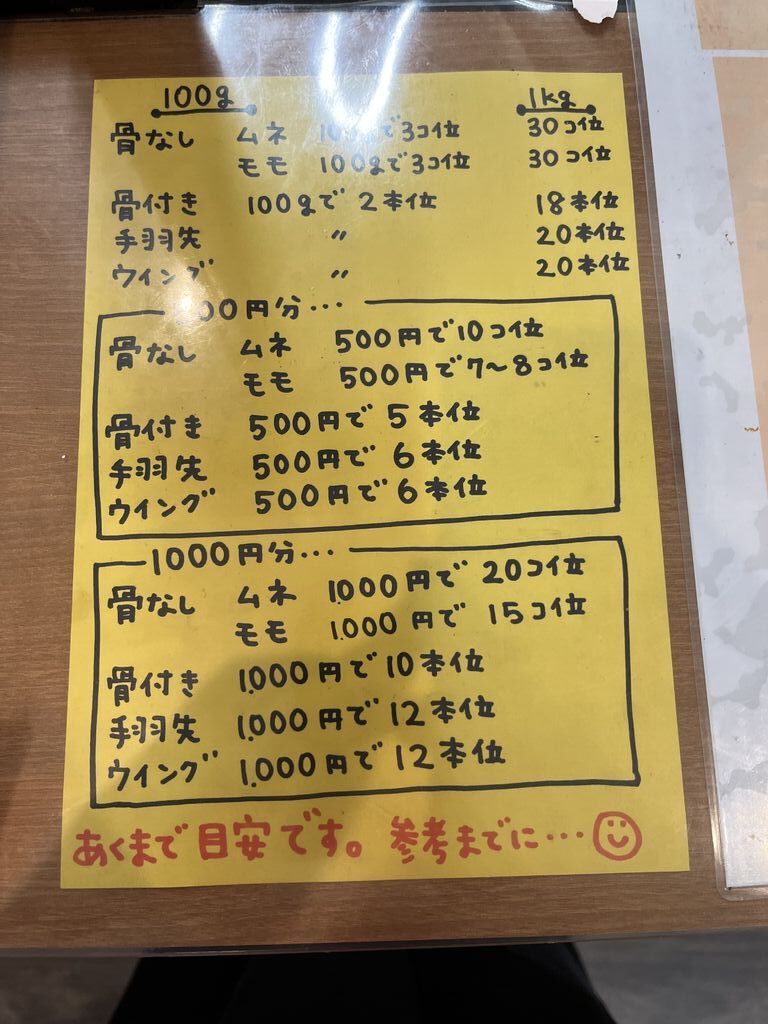 100g 1kg
骨なし ムネ 100gで3コ位 30コ位
モモ 100gで3コ位 30コ位
骨付き 100gで 2本位 18本位
手羽先 〃 20本位
ウイング 〃 20本位
500円分...
骨なし ムネ 500円で10コ位
モモ 500円で7〜8コ位
骨付き 500円で 5本位
手羽先 500円で 6本位
ウイング 500円で 6本位
1000円分...
骨なし ムネ 1.000円で 20コ位
モモ 1.000円で 15コ位
骨付き 1.000円で10本位
手羽先 1.000円で12本位
ウイング 1.000円で12本位
あくまで目安です。参考までに...